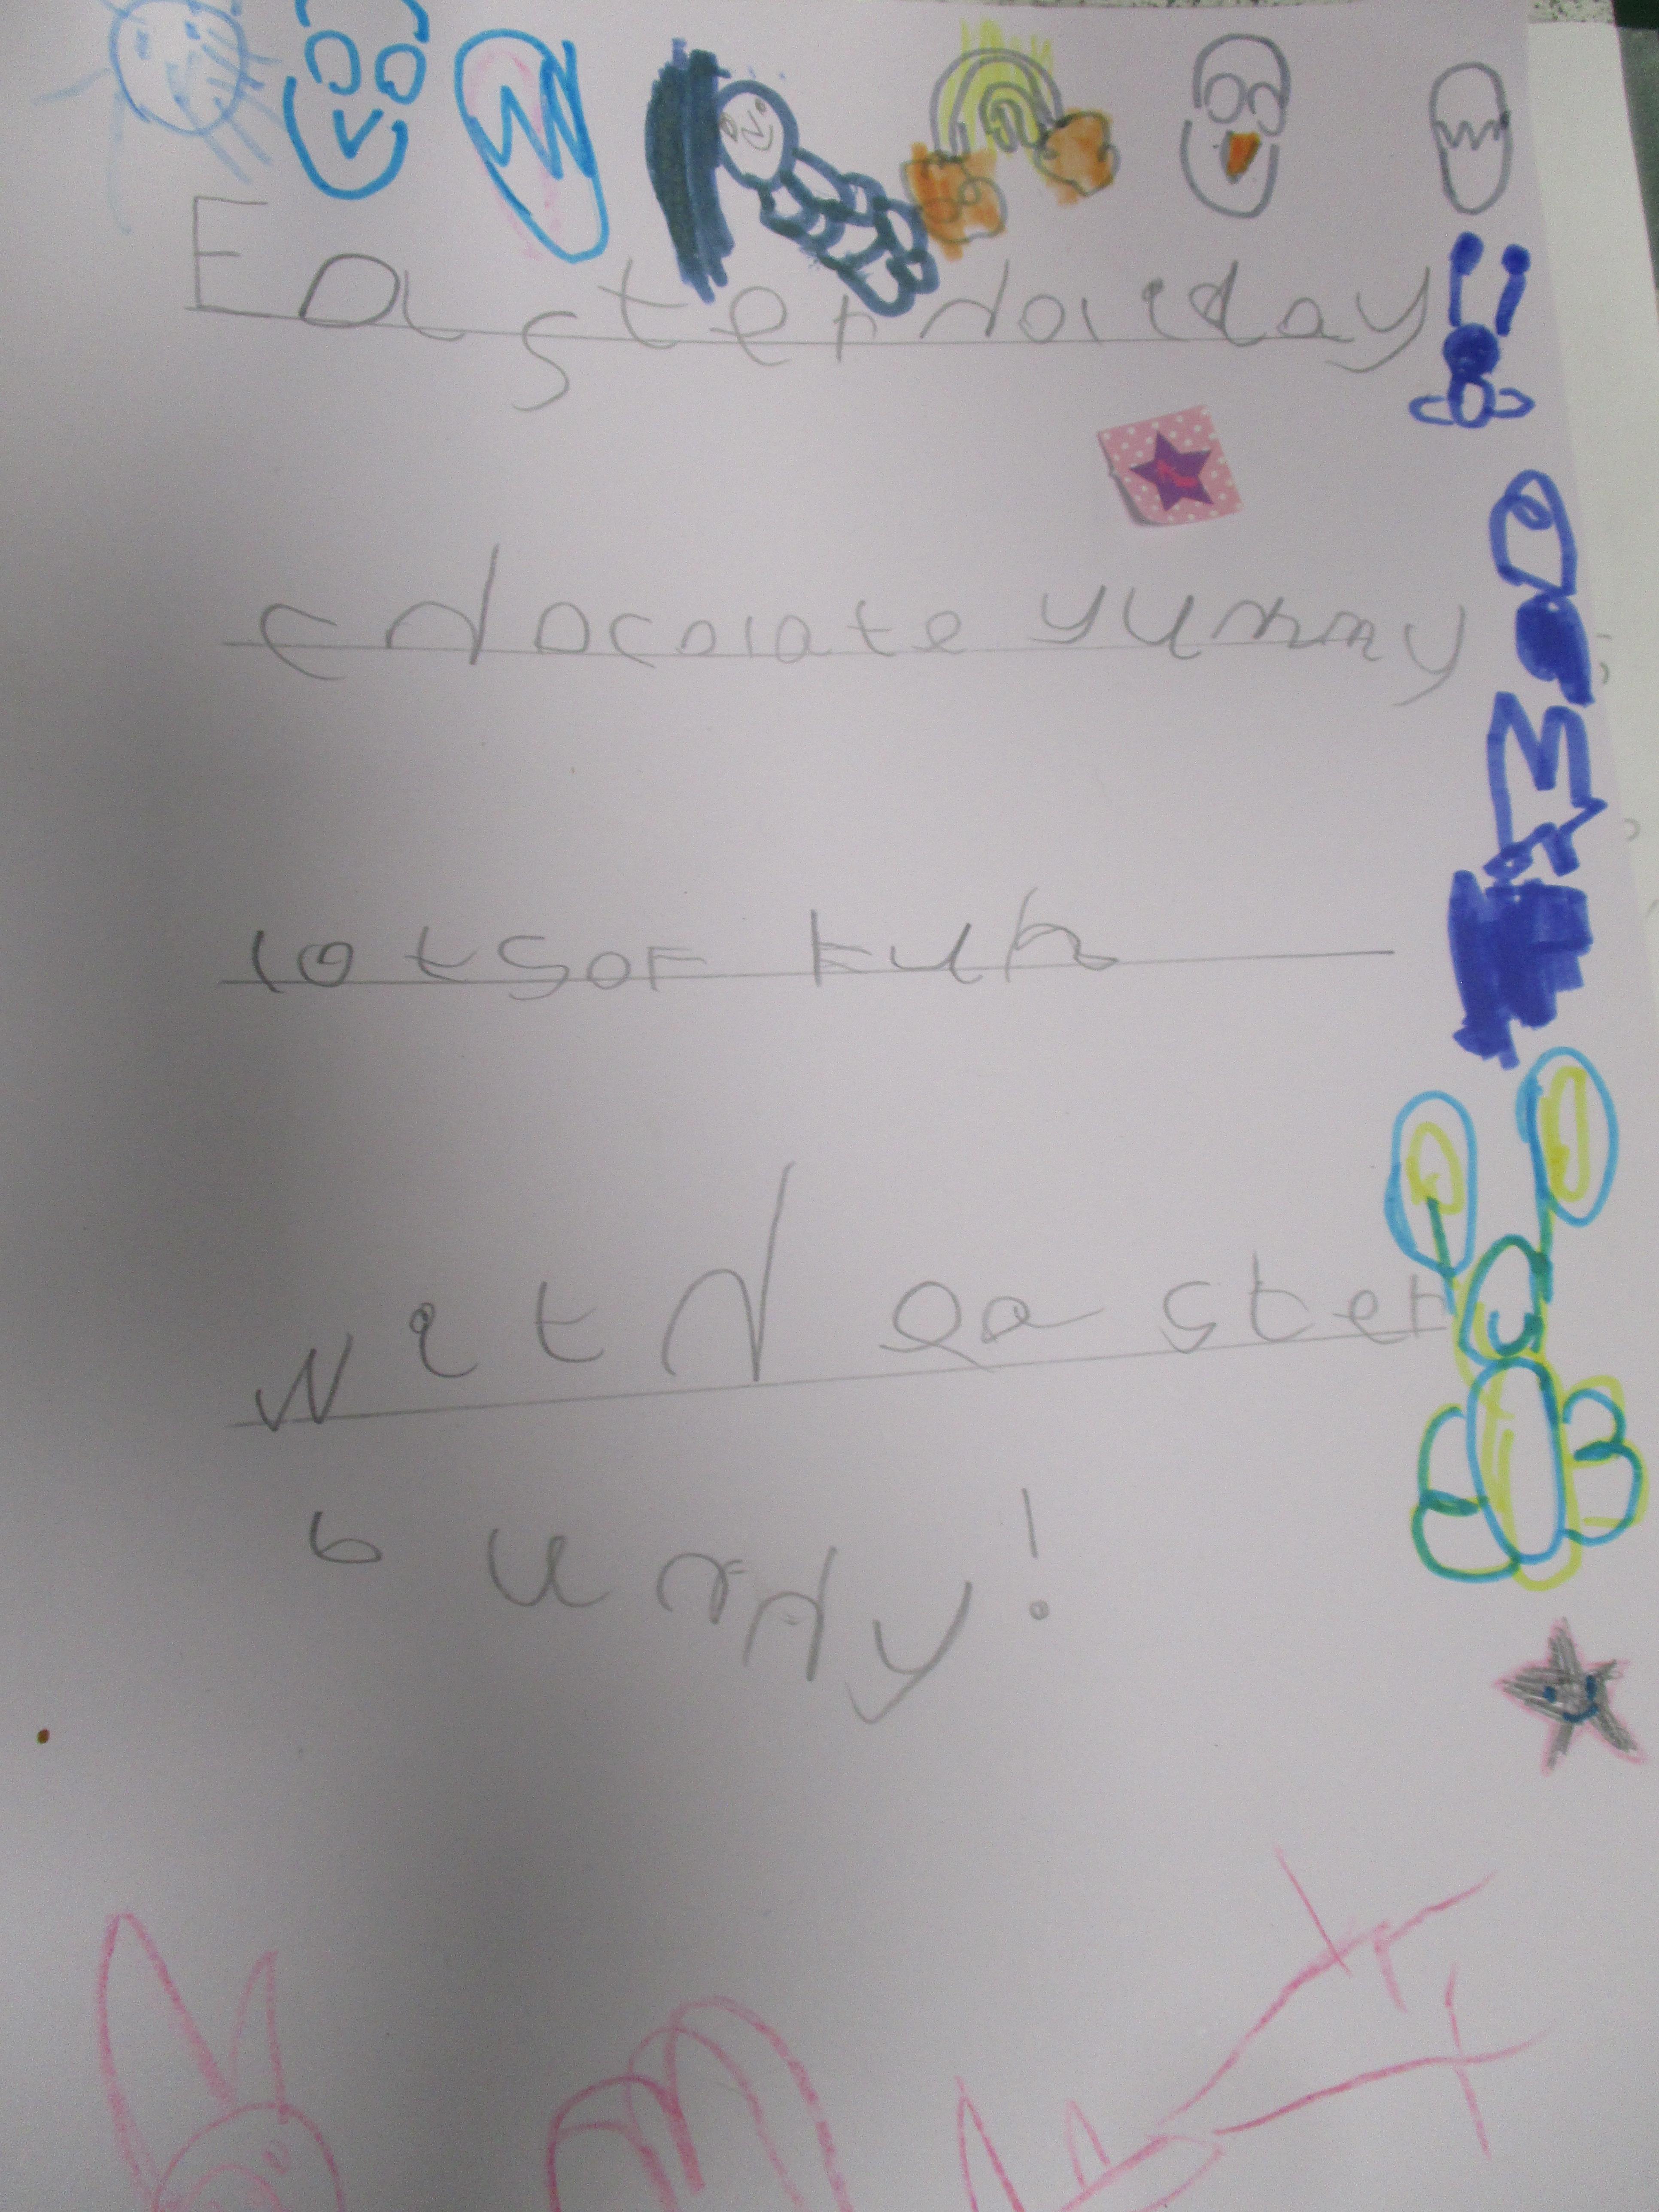 Easter holiday
chocolate yummy
lots of fun
with easter
bunny!